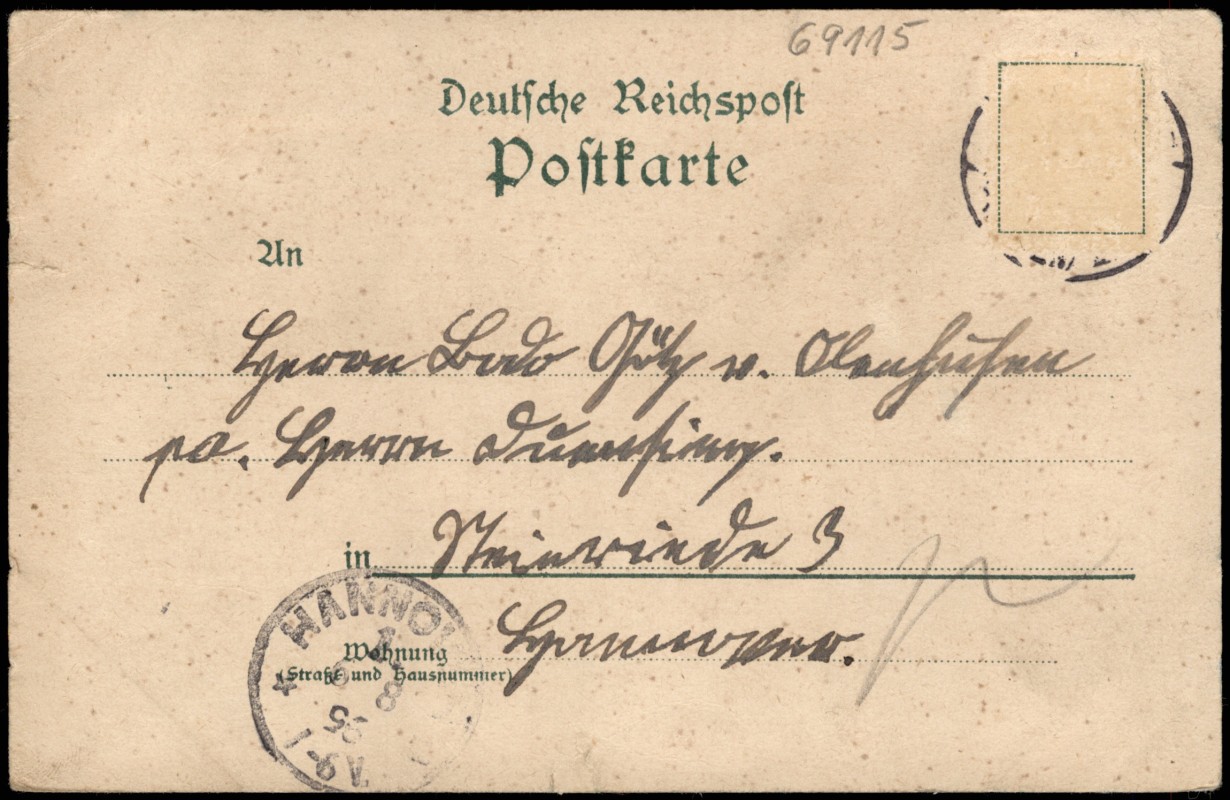 69115
Deutsche Reichspost
Postkarte
An
Herrn Bodo Götz v. Olenhusen
p. a. Herrn Duensing.
in Steinriede 3
Wohnung
(Straße und Hausnummer)
Hannover.
HANNO
1
8
95